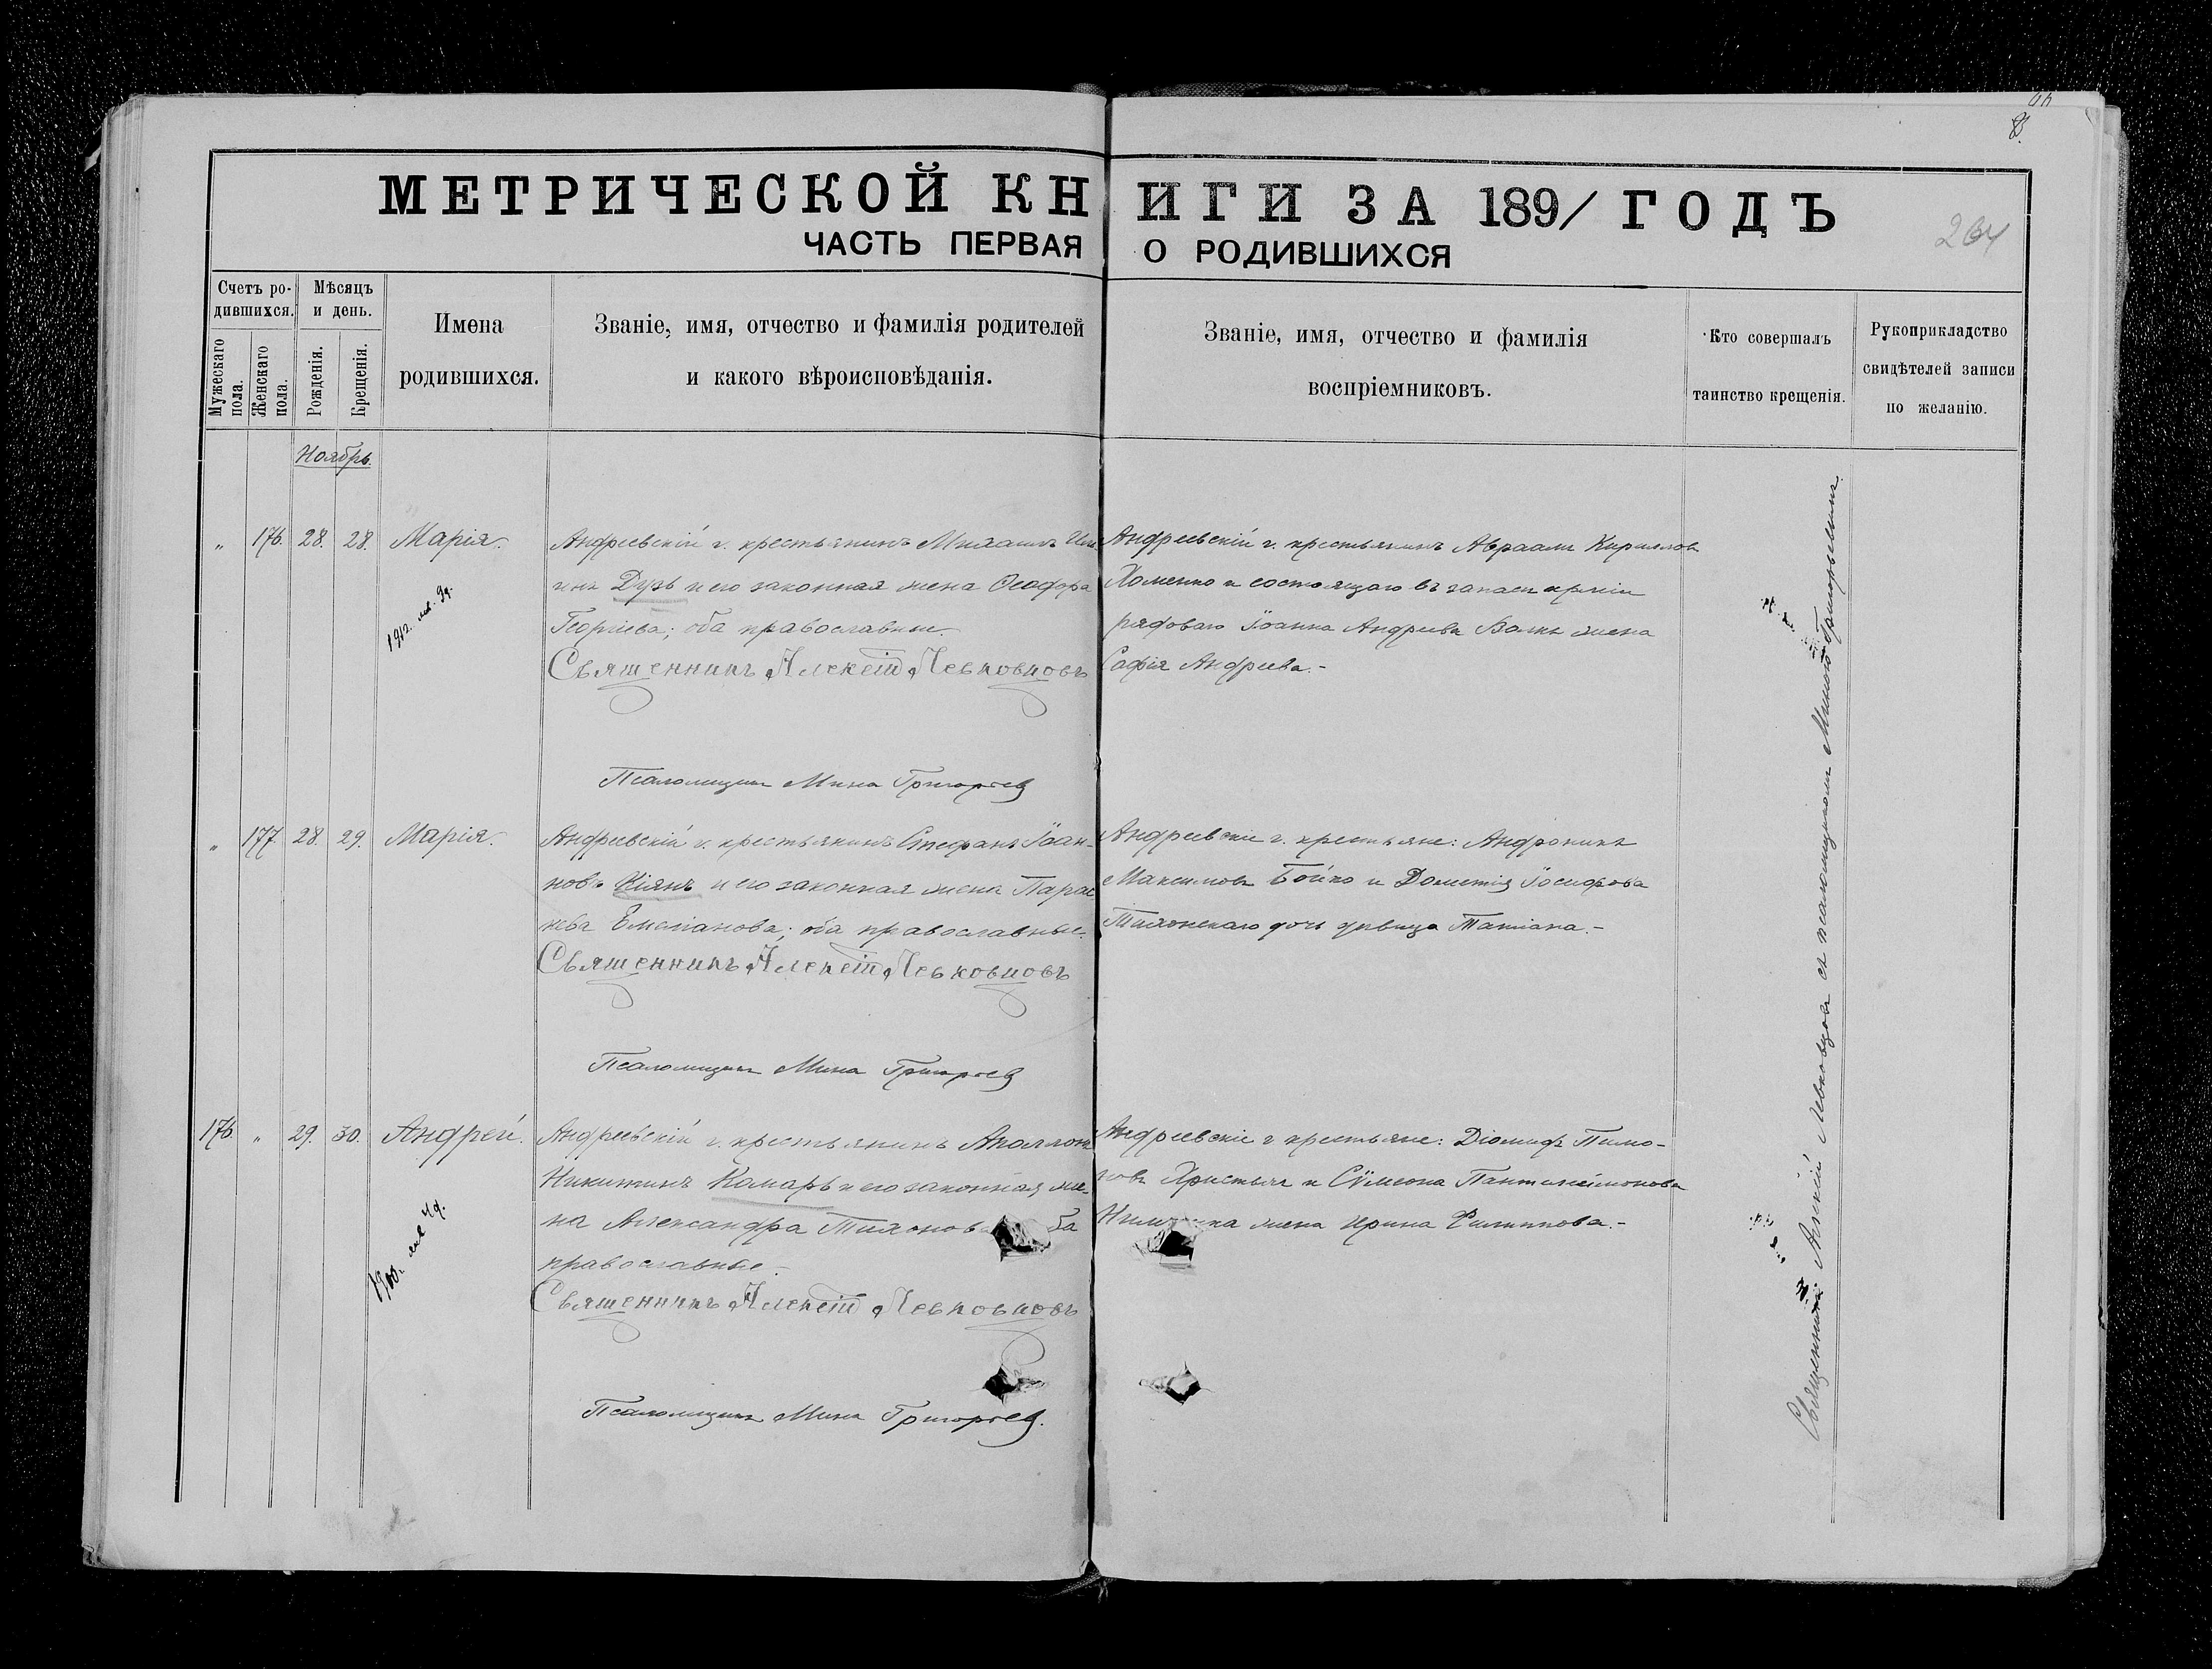 МЕТРИЧЕСКОЙ КНИГИ ЗА 1891 ГОДЪ
264
ЧАСТЬ ПЕРВАЯ О РОДИВШИХСЯ
Счетъ родившихся.
Мужескаго пола.
Женскаго пола.
Мѣсяцъ и день.
Рожденія.
Крещенія.
Имена
родившихся.
Званіе, имя, отчество и фамилія родителей
и какого вѣроисповѣданія.
Званіе, имя, отчество и фамилія
воспріемниковъ.
Кто совершалъ
таинство крещенія.
Рукоприкладство
свидѣтелей записи
по желанію.
Ноябрь.
„ 176. 28. 28. Марія.
Андреевскій г. крестьянинъ Михаилъ
Дузь и его законная жена Ѳеодора
Георгіева; оба православные.
Священникъ Алексій Левковцовъ
Псаломщикъ Мина Григорьевъ
Андреевскій г. крестьянинъ Авраамъ Кириллов
Хоменко и состоящаго въ запасѣ арміи
рядоваго Іоанна Андреева Волкъ жена
Софія Андреева.-
„ 177. 28. 29. Марія.
Андреевскій г. крестьянинъ Стефанъ Іоан-
новъ Кіянъ и его законная жена Парас
кева Емеліанова; оба православные.
Священникъ Алексій Левковцовъ
Псаломщикъ Мина Григорьевъ
Андреевскіе г. крестьяне: Андроникъ
Максимовъ Бойко и Дометія Іосифова
Тихонскаго дочь дѣвица Татіана.-
176. „ 29. 30. Андрей.
Андреевскій г. крестьянинъ Аполлонъ
Никитинъ Комарь и его законная же-
на Александра Тихонов ба
православные.-
Священникъ Алексій Левковцовъ
Псаломщикъ Мина Григорьевъ.
Андреевскіе г. крестьяне: Діомидъ Пимо-
новъ и Сѵмеона Пантелеимонова
жена Ирина Филиппова.-
Священникъ Алексій Левковцовъ съ псаломщикомъ Миною Григорьевымъ.